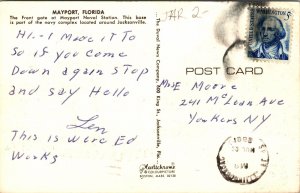 MAYPORT, FLORIDA
The Front gate at Mayport Naval Station. This base
is part of the navy complex located around Jacksonville.
Hi.-I Made It To
So if you come
Down again stop
and say Hello
Len
This is were Ed
Works
The Duval News Company, Jacksonville, Fla.
POST CARD
E Moore
241 McLean Ave
Yonkers NY